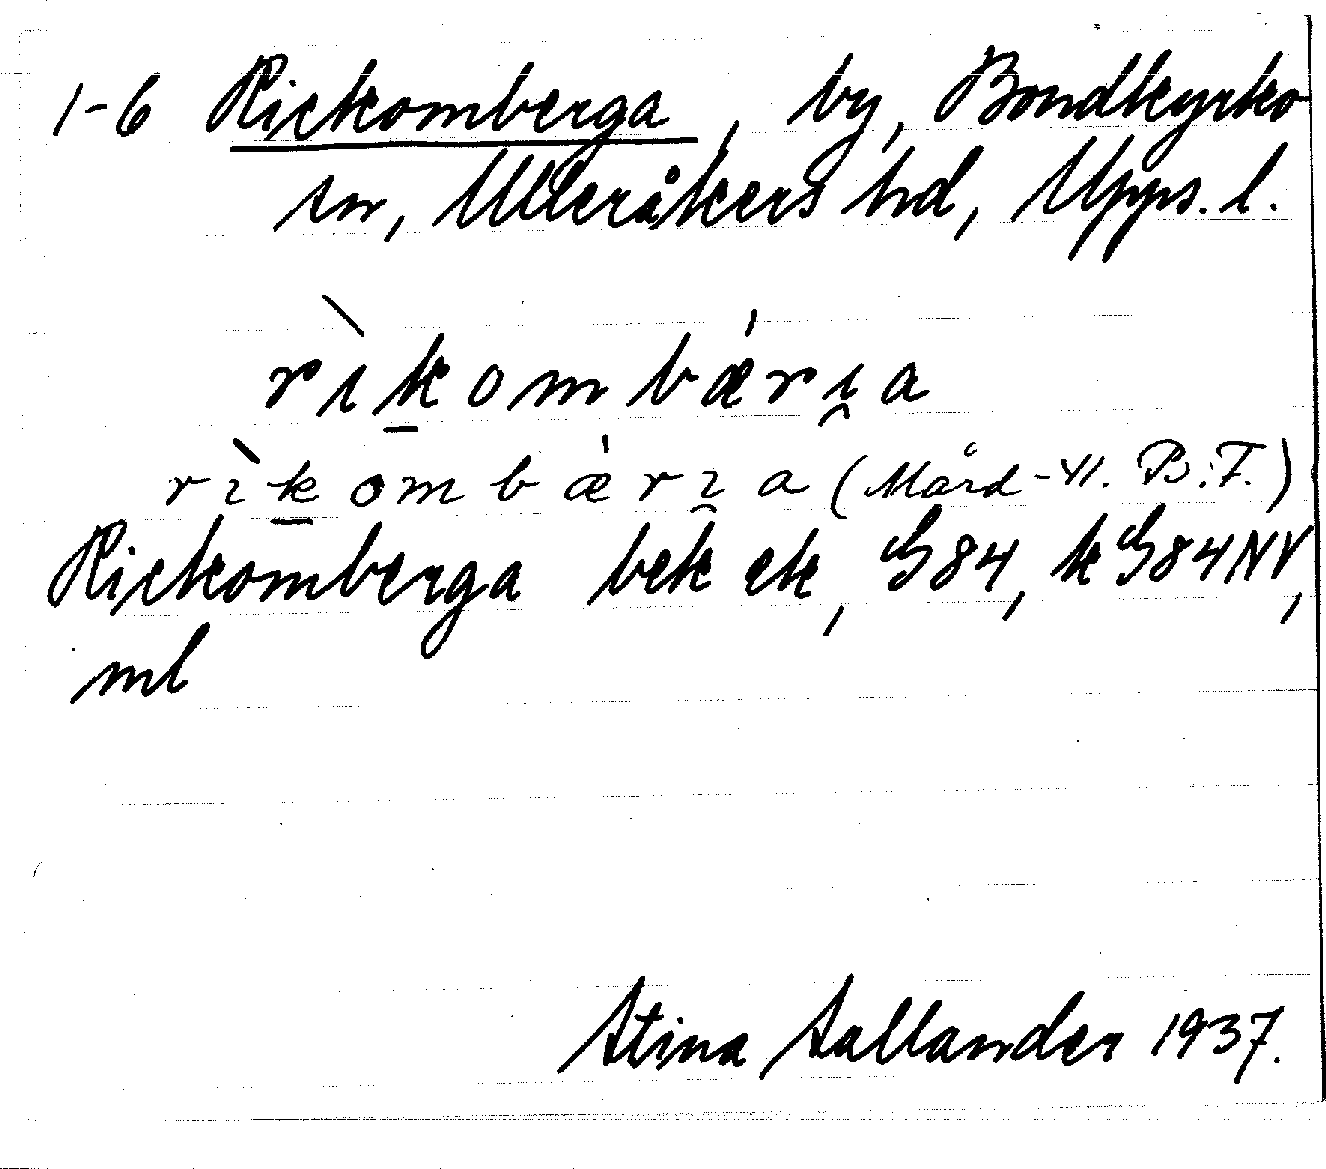 1-6 Rickomberga, by, Bondkyrko
sn, Ulleråkers hd, Upps. l.
rìkombǽri̯a
rìkombǽri̯a (Mård-
Rickomberga bek ek, G84, k G84NV,
ml
Stina Sallander 1937.